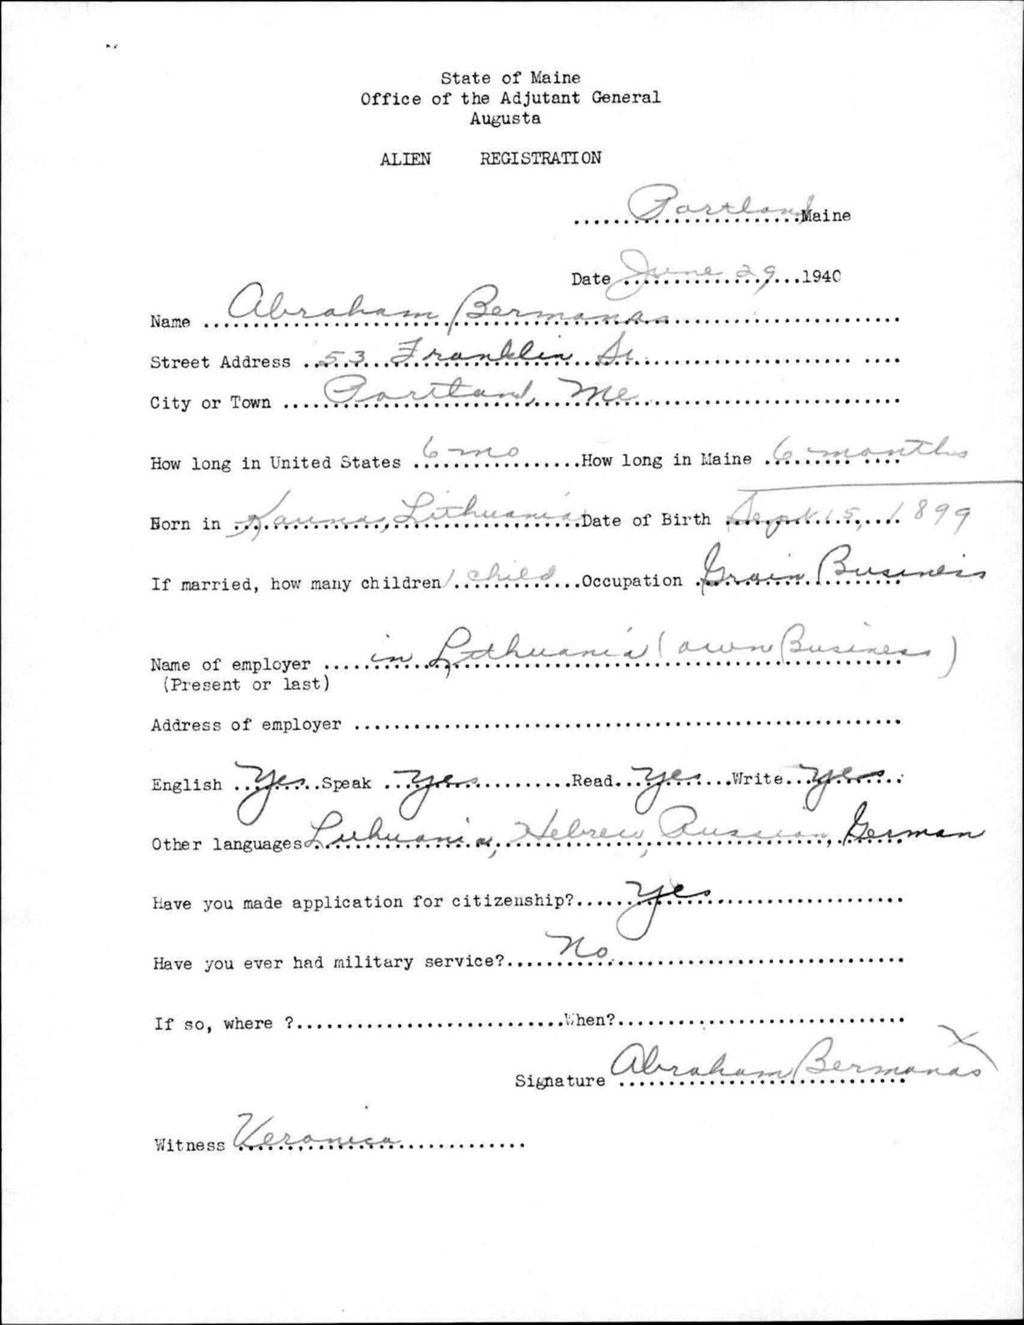 State of Maine
Office of the Adjutant General
Augusta
ALIEN REGISTRATION
Portland Maine
Date June 29 1940
Name Abraham Bermanas
Street Address 53 Franklin St.
City or Town Portland, Me
How long in United States 6 mo How long in Maine 6 months
Born in Kauna, Lithuania Date of Birth Sept 15, 1899
If married, how many children 1 child Occupation Grain Business
Name of employer in Lithuania (own Business)
(Present or last)
Address of employer
English Yes Speak Yes Read Yes Write Yes
Other languages Lithuania, Hebrew, Russian, German
Have you made application for citizenship? Yes
Have you ever had military service? No
If so, where ? When?
Signature Abraham Bermanas X
Witness Veronica